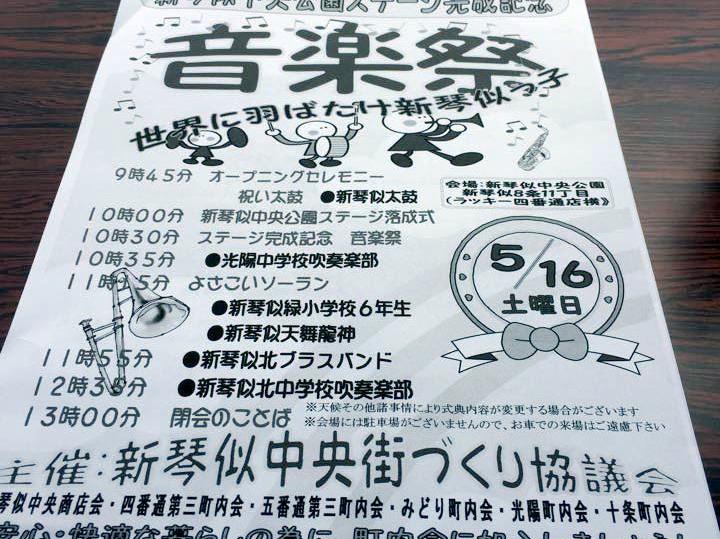 新琴似中央公園ステージ完成記念
音楽祭
世界に羽ばたけ新琴似っ子
9時45分 オープニングセレモニー
祝い太鼓 ●新琴似太鼓
会場:新琴似中央公園
新琴似8条11丁目
(ラッキー四番通店横》
10時00分 新琴似中央公園ステージ落成式
10時30分 ステージ完成記念 音楽祭
10時35分 ●光陽中学校吹奏楽部
11時15分 よさこいソーラン
●新琴似緑小学校6年生
●新琴似天舞龍神
5/16
土曜日
11時55分 ●新琴似北ブラスバンド
12時30分 ●新琴似北中学校吹奏楽部
13時00分 閉会のことば
※天候その他諸事情により式典内容が変更する場合がございます
※会場には駐車場がございませんので、お車での来場はご遠慮下さい
主催:新琴似中央街づくり協議会
琴似中央商店会・四番通第三町内会・五番通第三町内会・みどり町内会・光陽町内会・十条町内会
安心・快適な暮らしの為に 町内会に加入しましょう